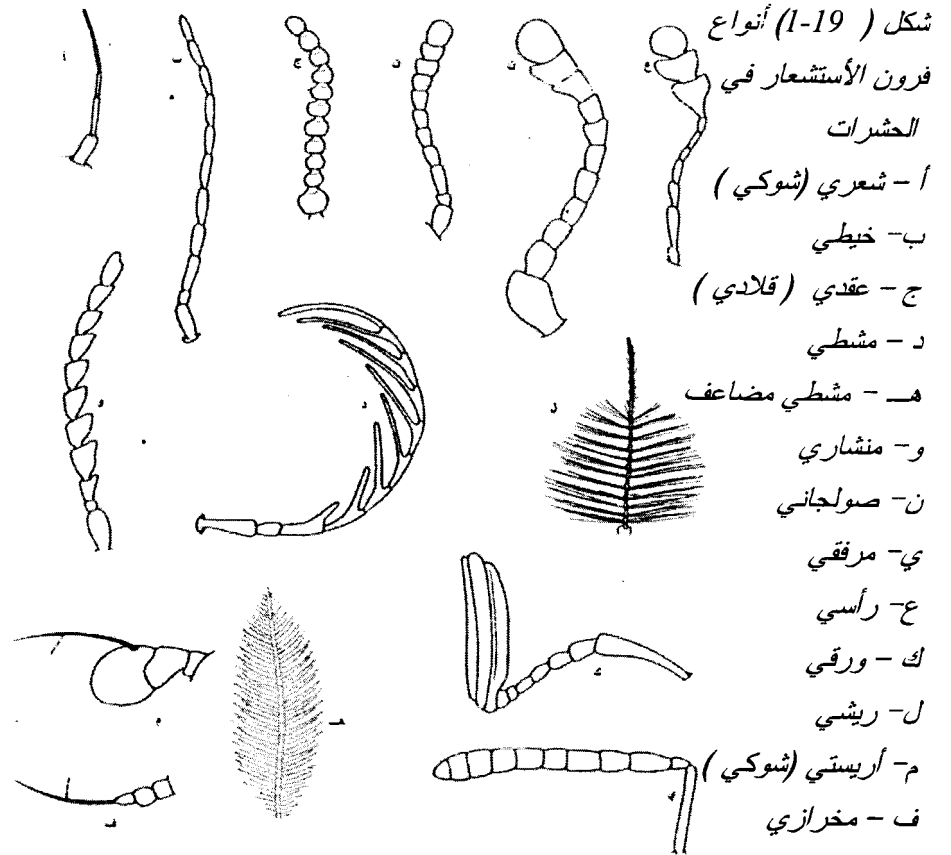 شكل ( 19-1) أنواع
فرون الأستشعار في
الحشرات
أ – شعري (شوكي )
ب– خيطي
ج – عقدي ( قلادي )
د – مشطي
هـ – مشطي مضاعف
و– منشاري
ن– صولجاني
ي– مرفقي
ع– رأسي
ك – ورقي
ل– ريشي
م– أريستي (شوكي )
ف – مخرازي
أ
ب
ج
ع
و
د
هـ
ف